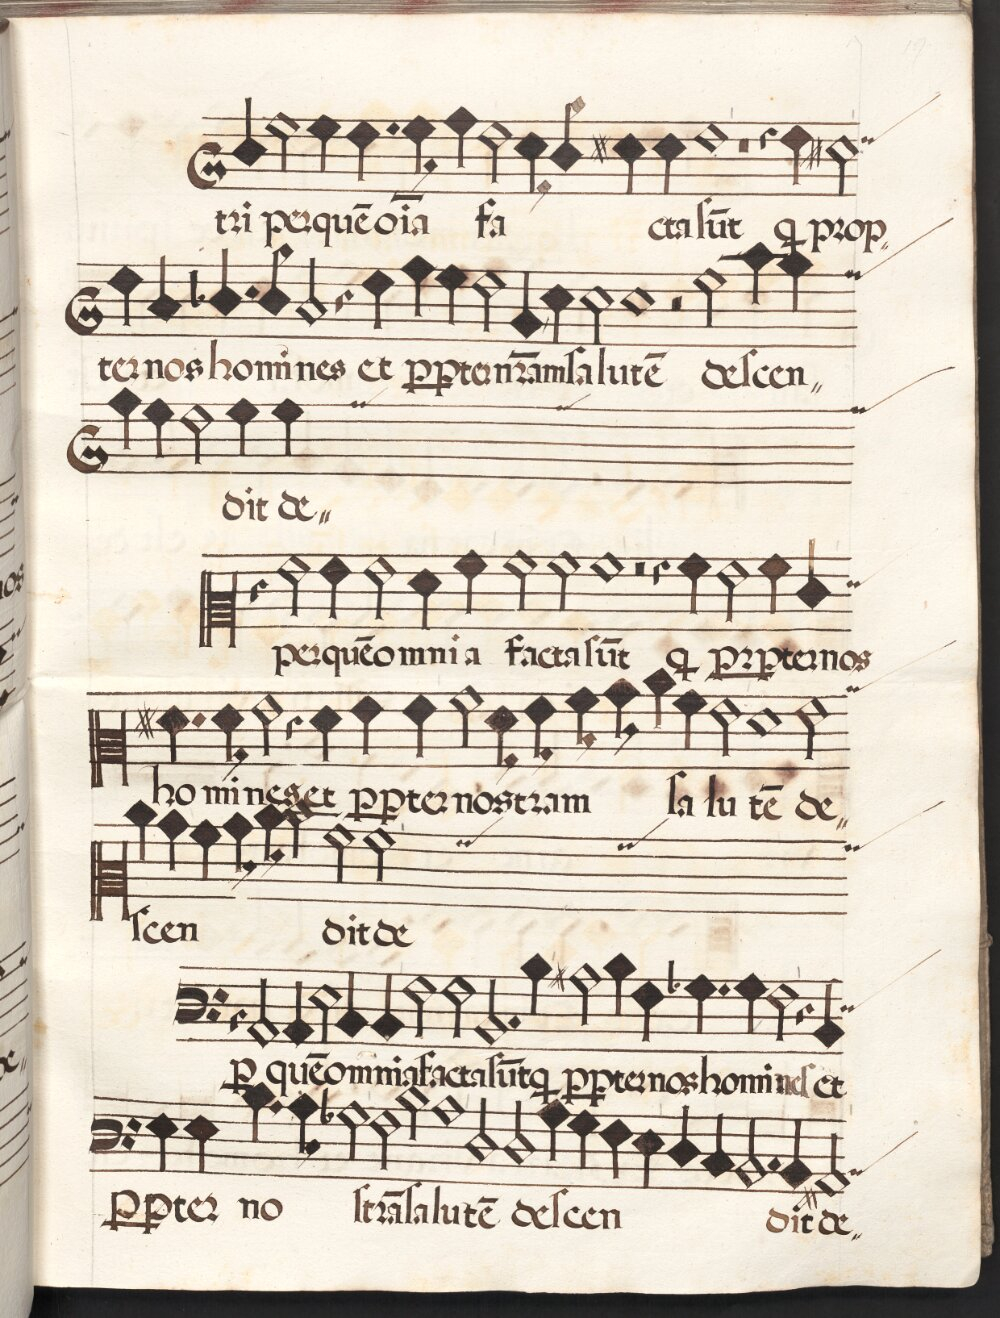 tri per quē oīa fa cta sūt q prop„
ter nos homines et ppter nr̄am salutē descen„
dit de„
per quē omnia facta sūt q prpter nos
homines et ppter nostram salutē de„
scen dit de
p quē omnia facta sūt q ppter nos homines et
ppter no strā salutē descen dit de„